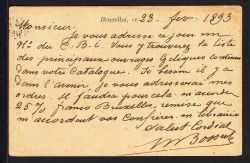 Bruxelles, ce 23 fev. 1893
Monsieur.
Je vous adresse ce jour un
No. du C.B.I. Vous y trouverez la liste
des principaux ouvrages contenus
dans votre Catalogue. Si besoin il y a
dans l'avenir, je vous adresserai mes
ordres. Il faudra pour cela m'accorder
25% franco Bruxelles, remise que
m'accordent vos Confrères en librairie
Salut Cordial